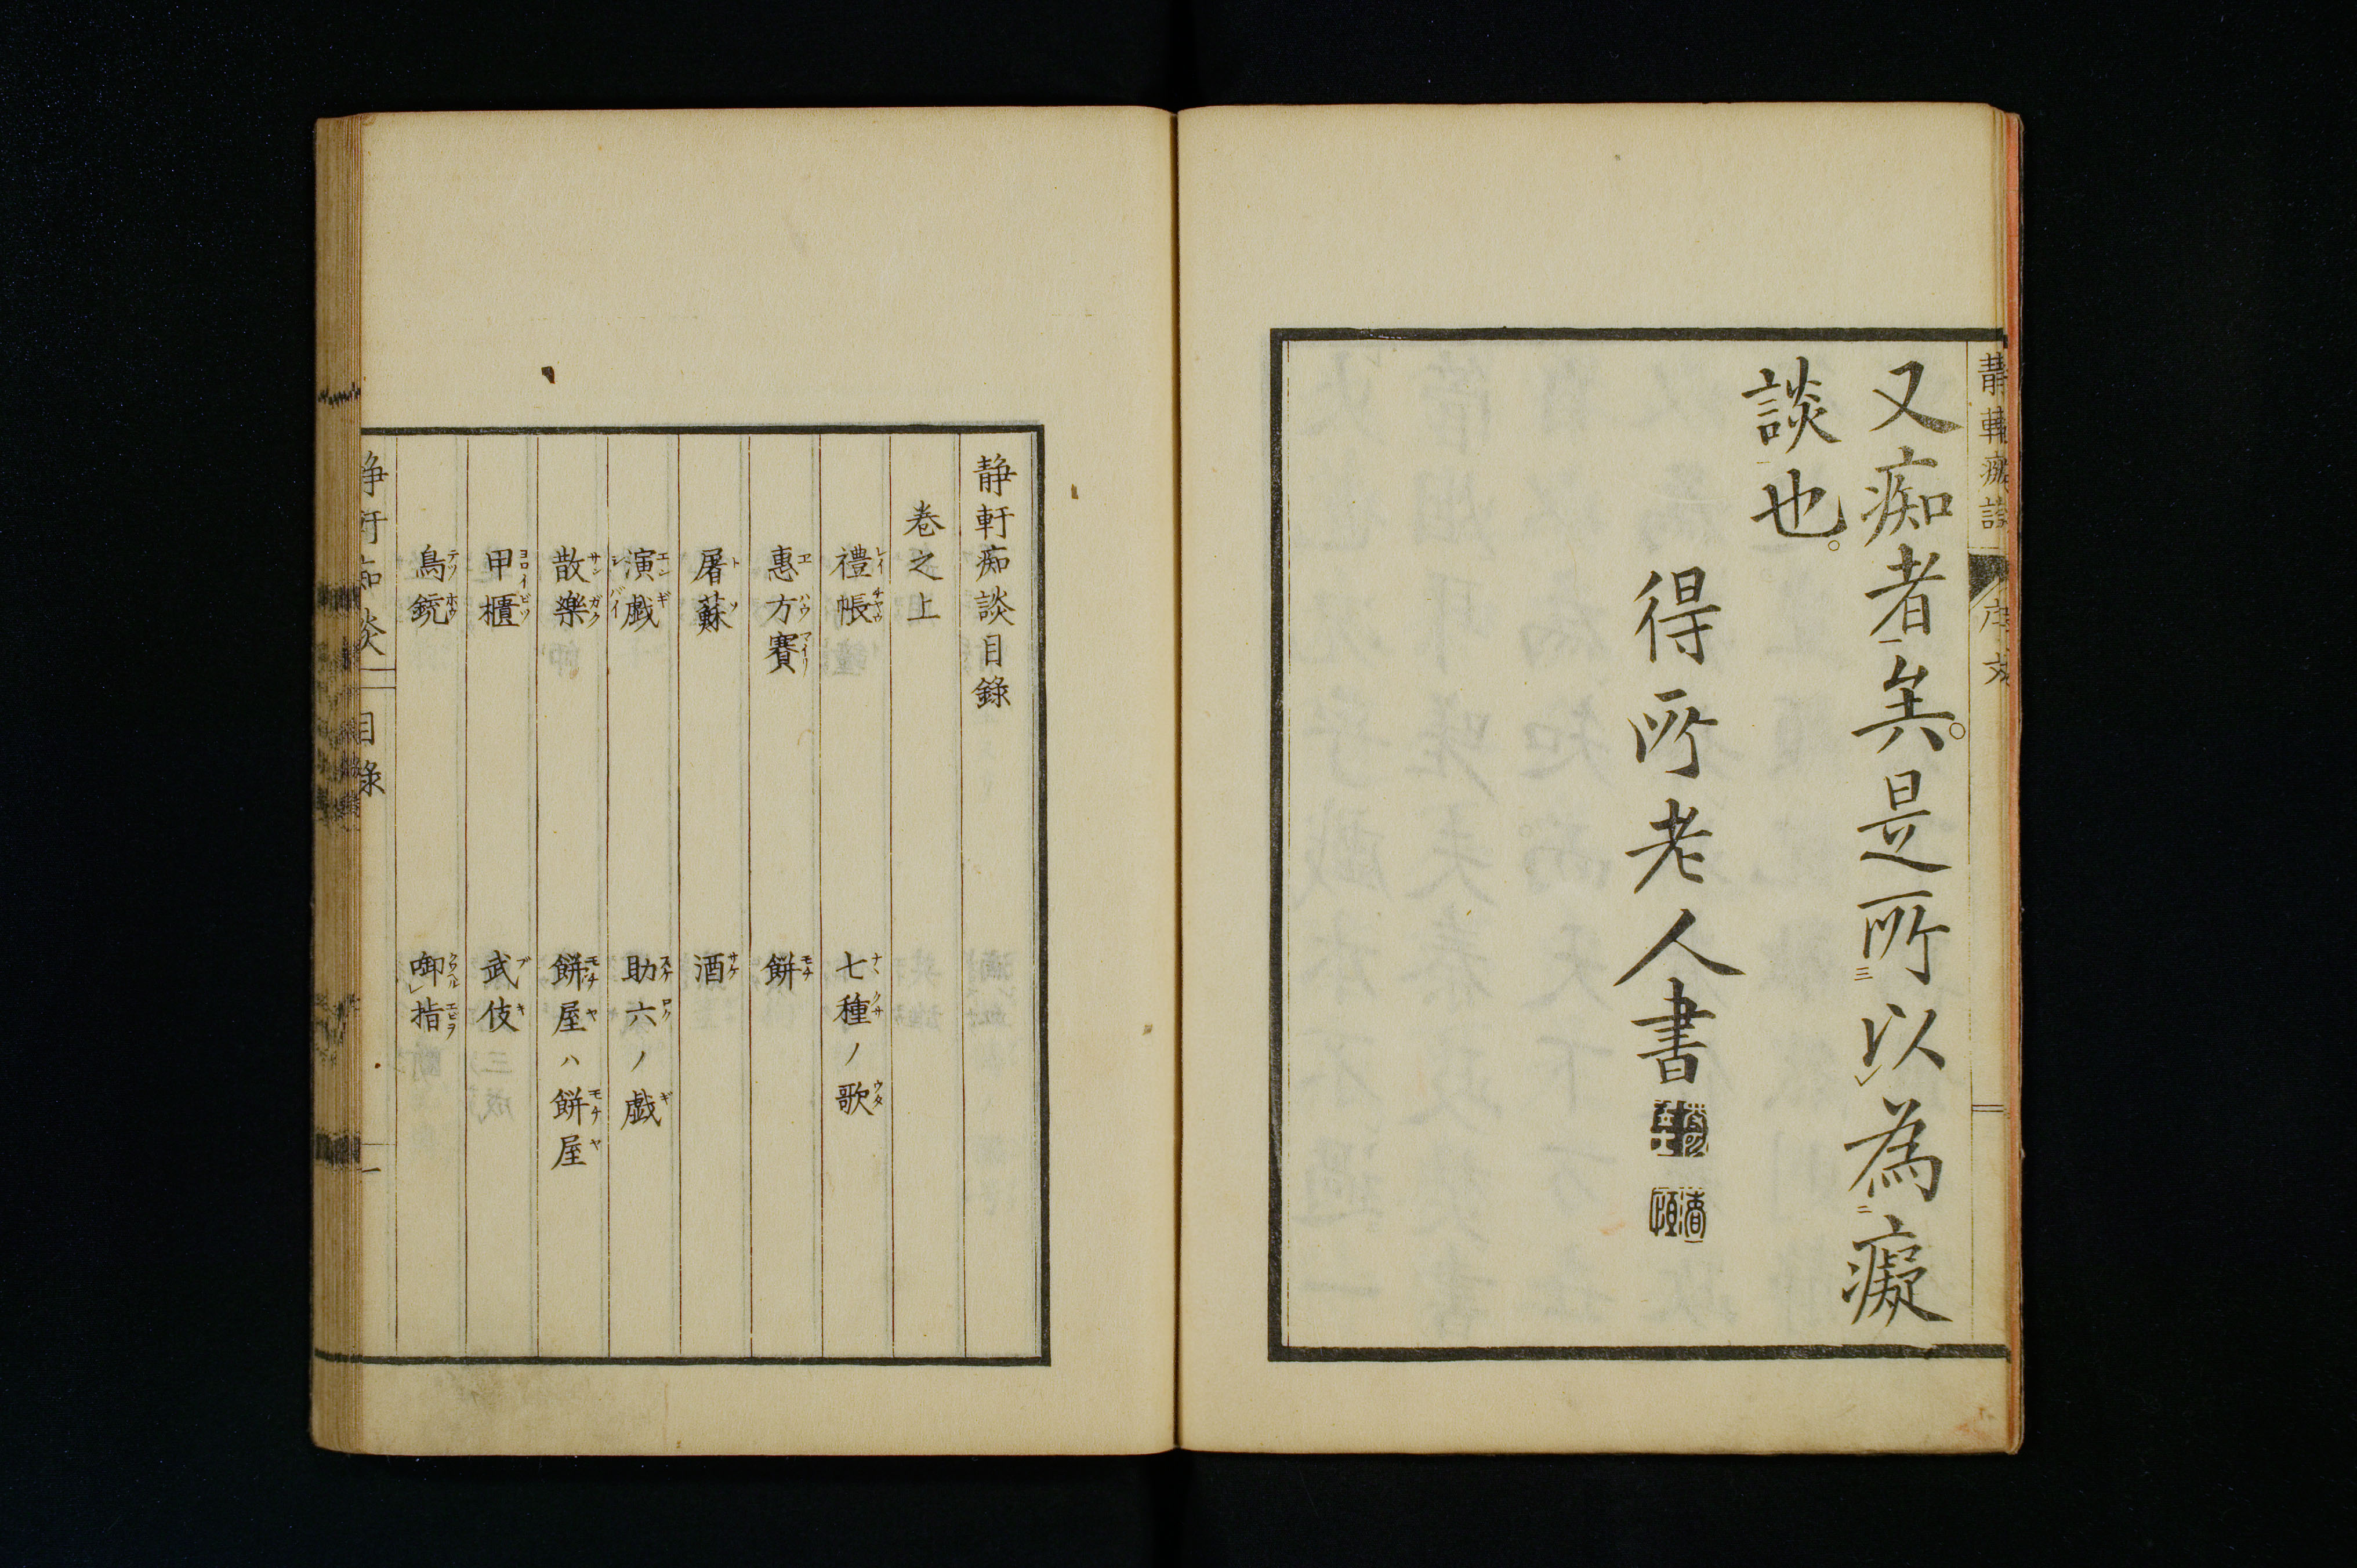 静軒癡談
序文
又痴者矣。是所以為癡
談也。
得所老人書
静軒痴談目錄
巻之上
禮帳 七種ノ歌
惠方賽 餅
屠蘇 酒
演戯 助六ノ戯
散樂 餅屋ハ餅屋
甲櫃 武伎
鳥銃 啣指
静軒痴談 目錄 一